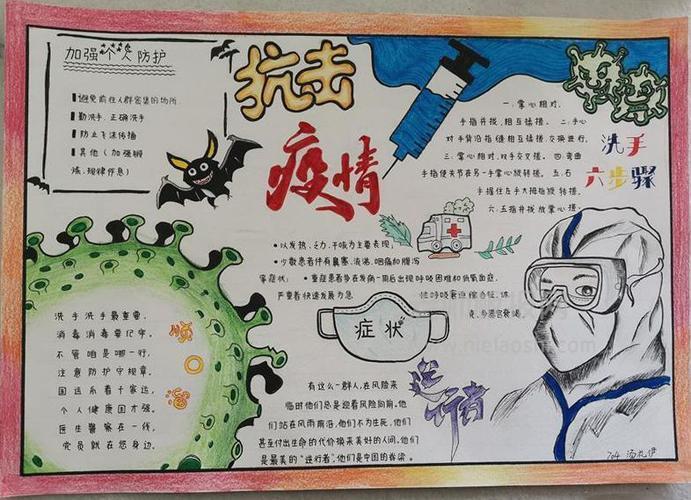 加强个人防护
避免前往人群密集的场所
勤洗手.正确洗手
防止飞沫传播
其他(加强锻
炼.规律作息)
抗击
疫情
一.掌心相对.
手指并拢.相互揉搓. 二.手心
对手背沿指缝相互揉搓.交换进行.
三.掌心相对.双手交叉搓. 四.弯曲
手指使关节在另一手掌心旋转搓. 五.右
手握住左手大拇指旋转搓.
六.五指并拢放掌心搓.
洗手
六步骤
以发热、乏力、干咳为主要表现;
少数患者伴有鼻塞、流涕、咽痛和腹泻
等症状; 重症患者多在发病一周后出现呼吸困难和低氧血症,
严重者快速发展为急
性呼吸窘迫综合征、休
症状
洗手洗手最重要,
消毒消毒要记牢。
不管咱是哪一行,
注意防护守规章。
国运系着千家运,
个人健康国才强。
医生警察在一线,
党员就在您身边。
顺
口
溜
有这么一群人,在风险来
临时他们总是迎着风险向前。他
们站在风雨前沿,他们不为生死,他们
甚至付出生命的代价换来美好的人间,他们
是最美的“逆行者”.他们是中国的脊梁。
逆
行者
704